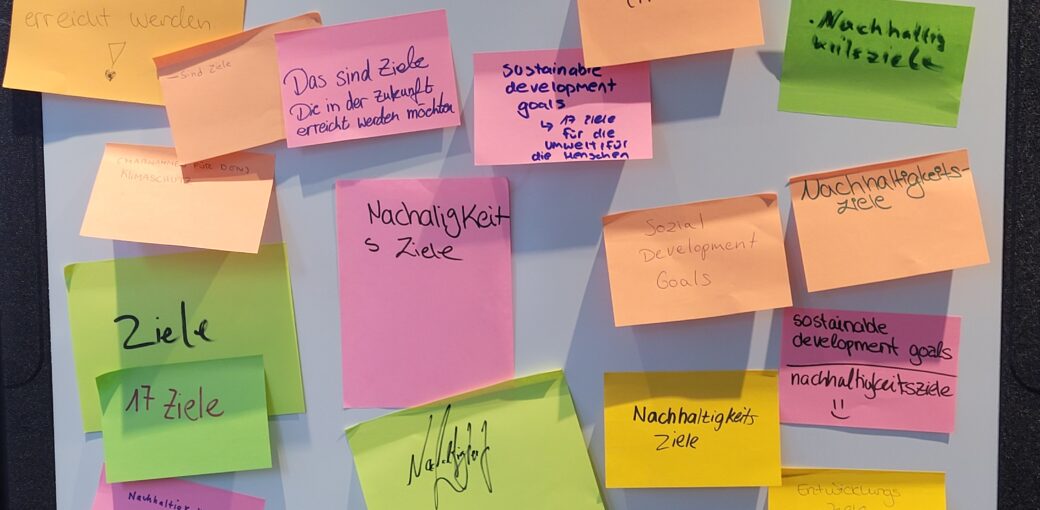 erreicht werden
!
– Sind Ziele
Das sind Ziele
Die in der Zukunft
erreicht werden möchten
sustainable
development
goals
↳ 17 Ziele
für die
Umwelt/für
die Menschen
.Nachhaltig
keitsziele
(MAßNAHMEN FÜR DEN)
KLIMASCHUTZ
Nachaligkeit
s Ziele
Sozial
Development
Goals
Nachhaltigkeits-
ziele
Ziele
17 Ziele
sostainable
development goals
nachhaltigkeitsziele
Nachhaltigkeits
Ziele
Entwicklungs